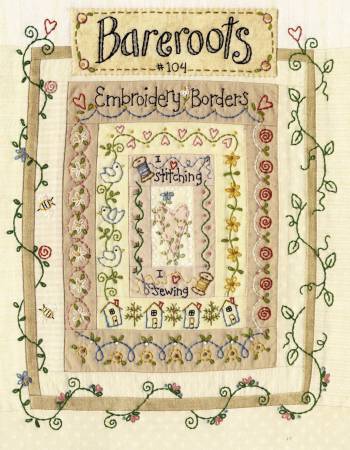 Bareroots
#104
Embroidery Borders
I
stitching
I
sewing